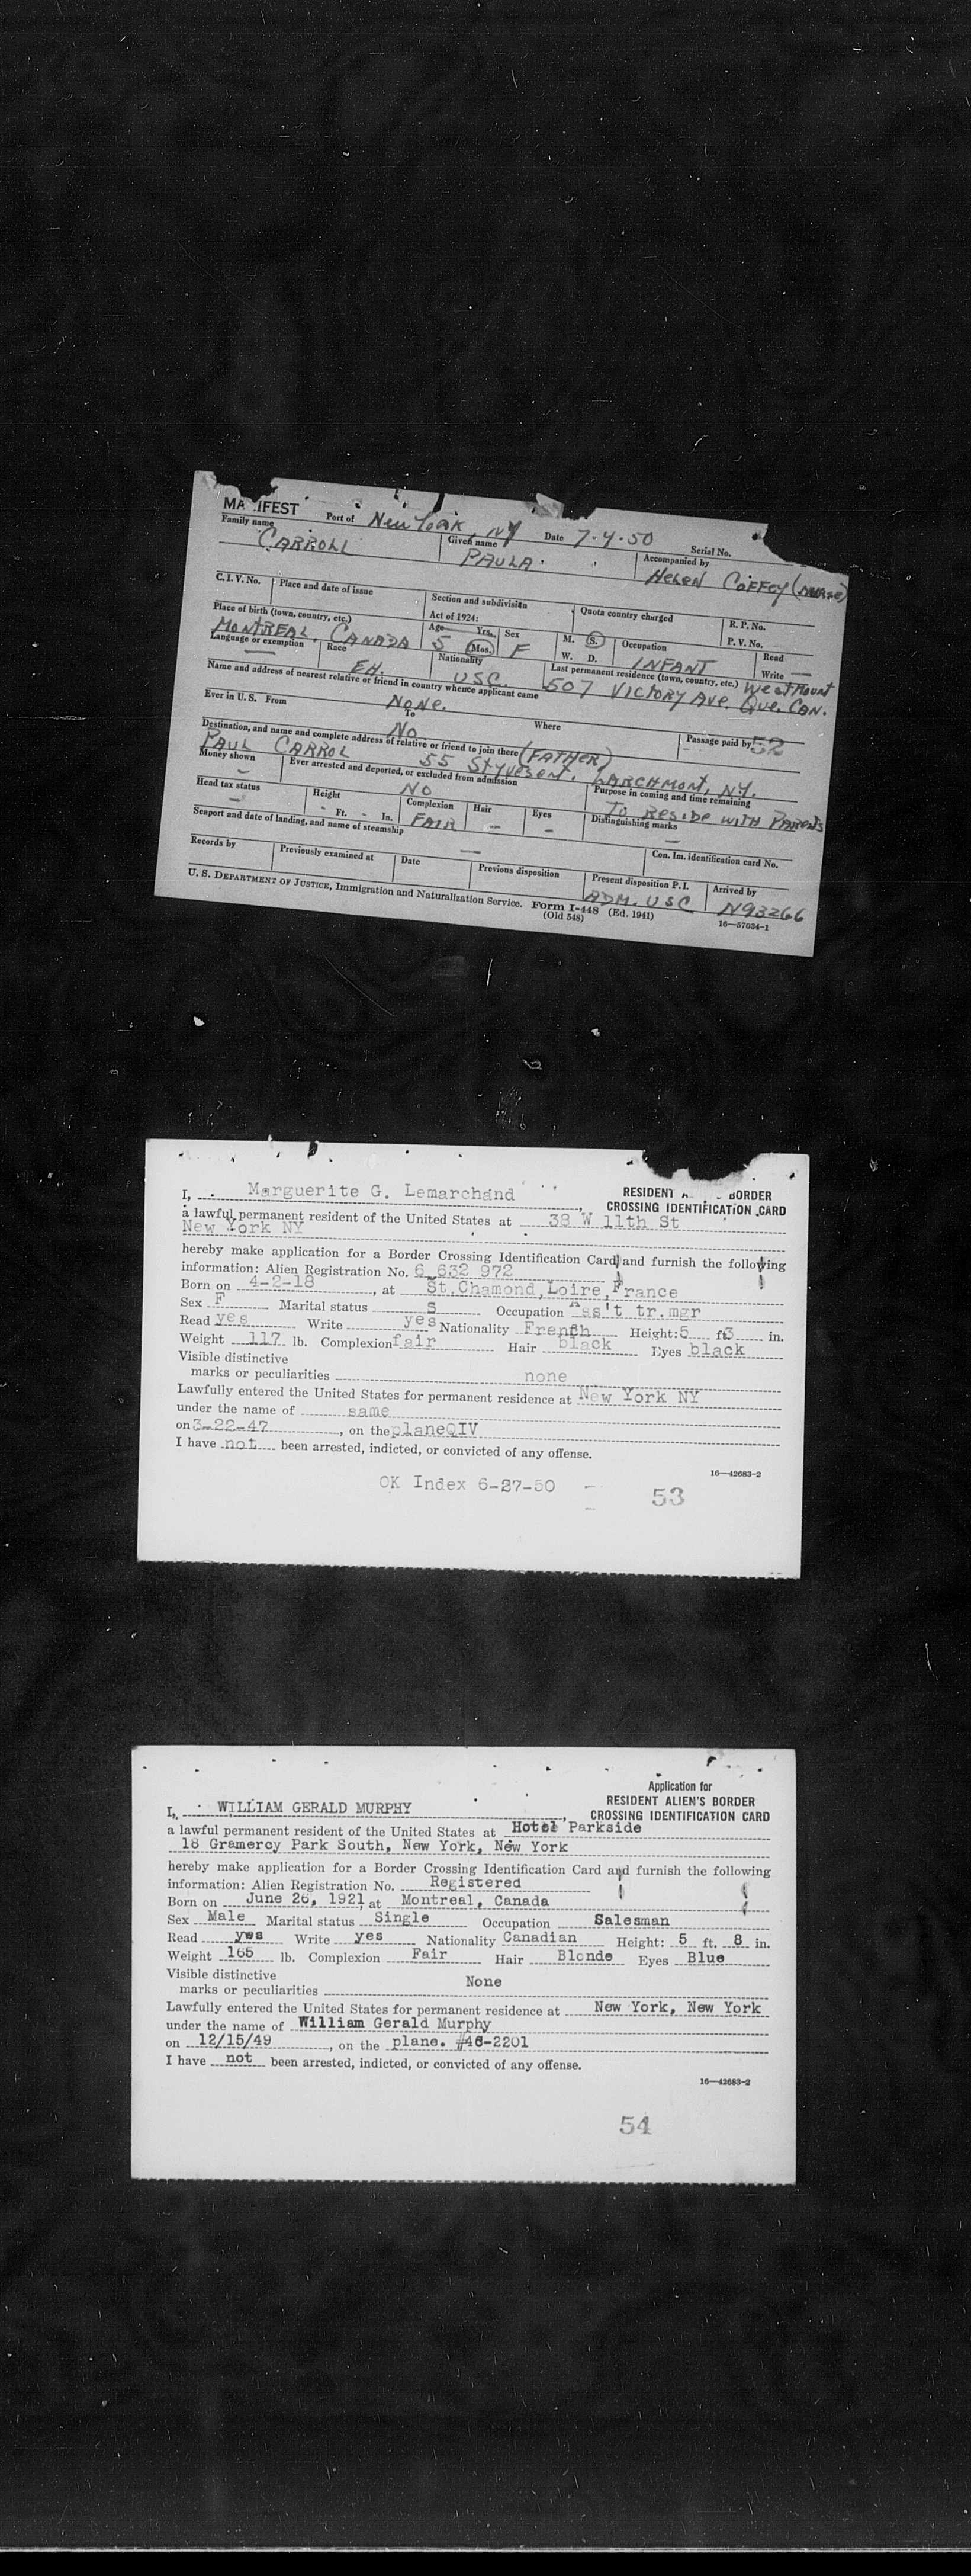 MA IFEST Port of New York, NY Date 7-4-50 Serial No.
Family name CARROLL Given name PAULA Accompanied by HELEN COFFEY (NURSE)
C. I. V. No. Place and date of issue Section and subdivision Act of 1924: Quota country charged R. P. No. P. V. No.
Place of birth (town, country, etc.) MONTREAL, CANADA Age 5 Yrs. Mos. Sex F M. S. W. D. Occupation INFANT Read Write —
Language or exemption — Race EH. Nationality USC. Last permanent residence (town, country, etc.) WESTMOUNT
507 VICTORY AVE. QUE. CAN.
Name and address of nearest relative or friend in country whence applicant came NONE.
Ever in U. S. From To NO Where Passage paid by 52
Destination, and name and complete address of relative or friend to join there (FATHER)
PAUL CARROL 55 STYVESENT, LARCHMONT, NY.
Money shown — Ever arrested and deported, or excluded from admission NO Purpose in coming and time remaining TO RESIDE WITH PARENTS
Head tax status — Height Ft. - In. Complexion FAIR Hair — Eyes — Distinguishing marks —
Seaport and date of landing, and name of steamship — Con. Im. identification card No.
Records by Previously examined at Date Previous disposition Present disposition P. I. ADM. USC Arrived by N93266
U. S. DEPARTMENT OF JUSTICE, Immigration and Naturalization Service. Form I-448 (Ed. 1941)
(Old 548) 16—57034-1
RESIDENT A BORDER
CROSSING IDENTIFICATION CARD
I, Marguerite G. Lemarchand,
a lawful permanent resident of the United States at 38 W 11th St
New York NY
hereby make application for a Border Crossing Identification Card and furnish the following
information: Alien Registration No. 6 632 972
Born on 4-2-18, at St Chamond, Loire, France
Sex F Marital status S Occupation Ass't tr.mgr
Read yes Write yes Nationality French Height: 5 ft. 3 in.
Weight 117 lb. Complexion fair Hair black Eyes black
Visible distinctive
marks or peculiarities none
Lawfully entered the United States for permanent residence at New York NY
under the name of same
on 3-22-47, on the plane QIV
I have not been arrested, indicted, or convicted of any offense.
16—42683-2
OK Index 6-27-50 53
Application for
RESIDENT ALIEN'S BORDER
CROSSING IDENTIFICATION CARD
I, WILLIAM GERALD MURPHY,
a lawful permanent resident of the United States at Hotel Parkside
18 Gramercy Park South, New York, New York
hereby make application for a Border Crossing Identification Card and furnish the following
information: Alien Registration No. Registered
Born on June 26, 1921 at Montreal, Canada
Sex Male Marital status Single Occupation Salesman
Read yes Write yes Nationality Canadian Height: 5 ft. 8 in.
Weight 165 lb. Complexion Fair Hair Blonde Eyes Blue
Visible distinctive
marks or peculiarities None
Lawfully entered the United States for permanent residence at New York, New York
under the name of William Gerald Murphy
on 12/15/49, on the plane. #46-2201
I have not been arrested, indicted, or convicted of any offense.
16—42683-2
54